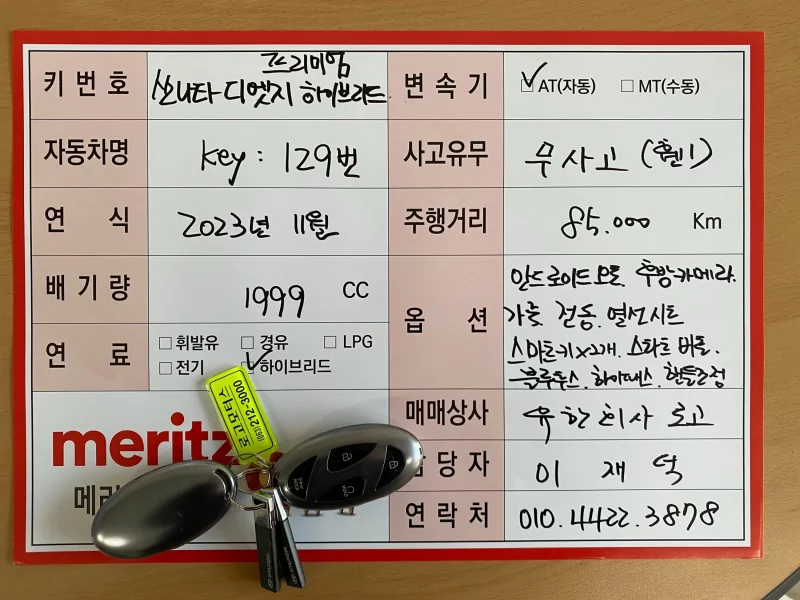 키 번 호 프리미엄
쏘나타 디엣지 하이브리드
변 속 기 ☑ AT(자동) ☐ MT(수동)
자동차명 key : 129번
사고유무 무사고 (휀1)
연 식 2023년 11월
주행거리 85.000 Km
배 기 량 1999 CC
옵 션 안드로이드오토. 후방카메라.
가죽 전동. 열선시트
스마트키x2개. 스타트 버튼.
블루투스. 하이패스. 핸들조정
연 료 ☐ 휘발유 ☐ 경유 ☐ LPG
☐ 전기 ☑ 하이브리드
매매상사 유한회사 로고
당 자 이 재 덕
연 락 처 010.4422.3878
meritz
메리
로고모터스
(063)212-3000
HYUNDAI